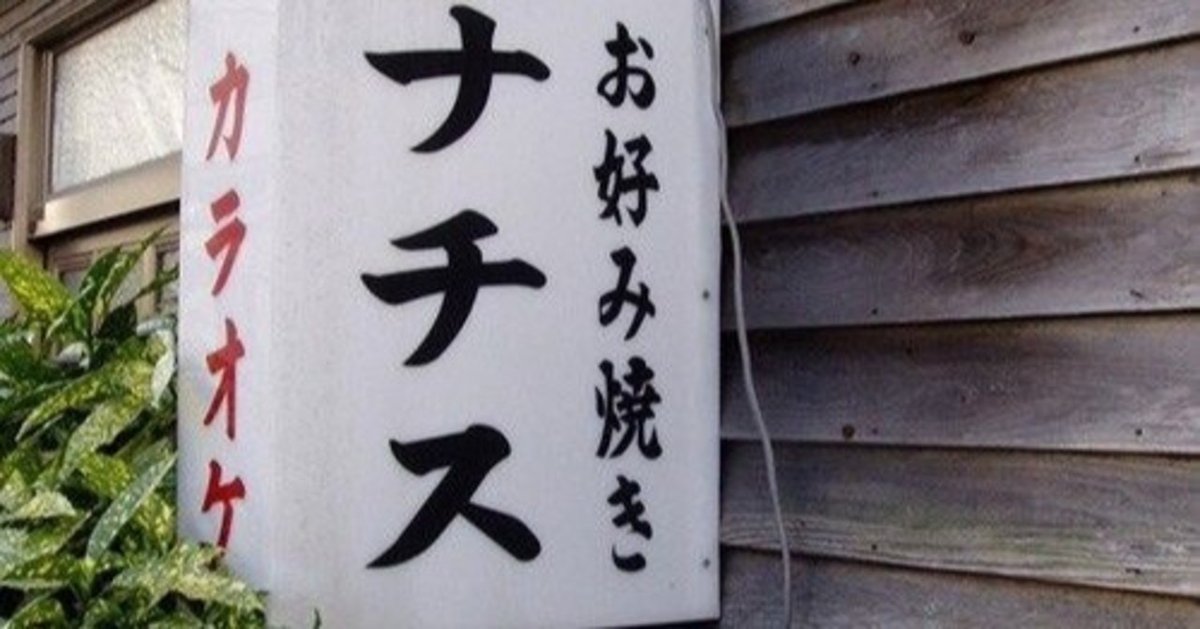 お好み焼き
ナチス
カラオケ